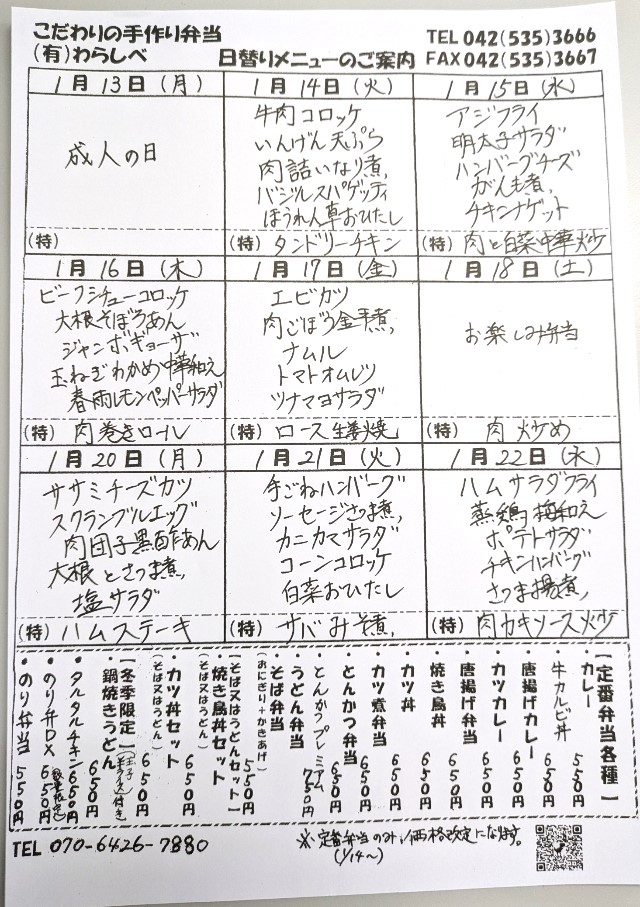 こだわりの手作り弁当
(有)わらしべ
日替りメニューのご案内
TEL 042(535)3666
FAX 042(535)3667
1月13日(月)
成人の日
(特)
1月14日(火)
牛肉コロッケ
いんげん天ぷら
肉詰いなり煮
バジルスパゲッティ
ほうれん草おひたし
(特) タンドリーチキン
1月15日(水)
アジフライ
明太子サラダ
ハンバーグチーズ
がんも煮
チキンナゲット
(特) 肉と白菜中華炒
1月16日(木)
ビーフシチューコロッケ
大根そぼろあん
ジャンボギョーザ
玉ねぎわかめ中華和え
春雨レモンペッパーサラダ
(特) 肉巻きロール
1月17日(金)
エビカツ
肉ごぼう金平煮
ナムル
トマトオムレツ
ツナマヨサラダ
(特) ロース生姜焼
1月18日(土)
お楽しみ弁当
(特) 肉炒め
1月20日(月)
ササミチーズカツ
スクランブルエッグ
肉団子黒酢あん
大根とさつま煮
塩サラダ
(特) ハムステーキ
1月21日(火)
手ごねハンバーグ
ソーセージさつま煮
カニカマサラダ
コーンコロッケ
白菜おひたし
(特) サバみそ煮
1月22日(水)
ハムサラダフライ
蒸鶏梅和え
ポテトサラダ
チキンハンバーグ
さつま揚煮
(特) 肉カキソース炒
【定番弁当各種】
カレー 550円
・牛カルビ丼 650円
・唐揚げカレー 650円
・カツカレー 650円
・唐揚げ弁当 650円
・焼き鳥丼 650円
・カツ丼 650円
・カツ煮弁当 650円
・とんかつ弁当 650円
・とんかつプレミアム 750円
・うどん弁当
・そば弁当
(おにぎり+かきあげ) 550円
【そば又はうどんセット】
・焼き鳥丼セット
(そば又はうどん) 650円
・カツ丼セット
(そば又はうどん) 650円
【冬季限定】
鍋焼きうどん
(半ライス付き) 650円
・タルタルチキン 650円
・のり弁DX 650円
・のり弁当 550円
TEL 070-6426-7880
※定番弁当のみ、価格改定になります。
(1/14~)